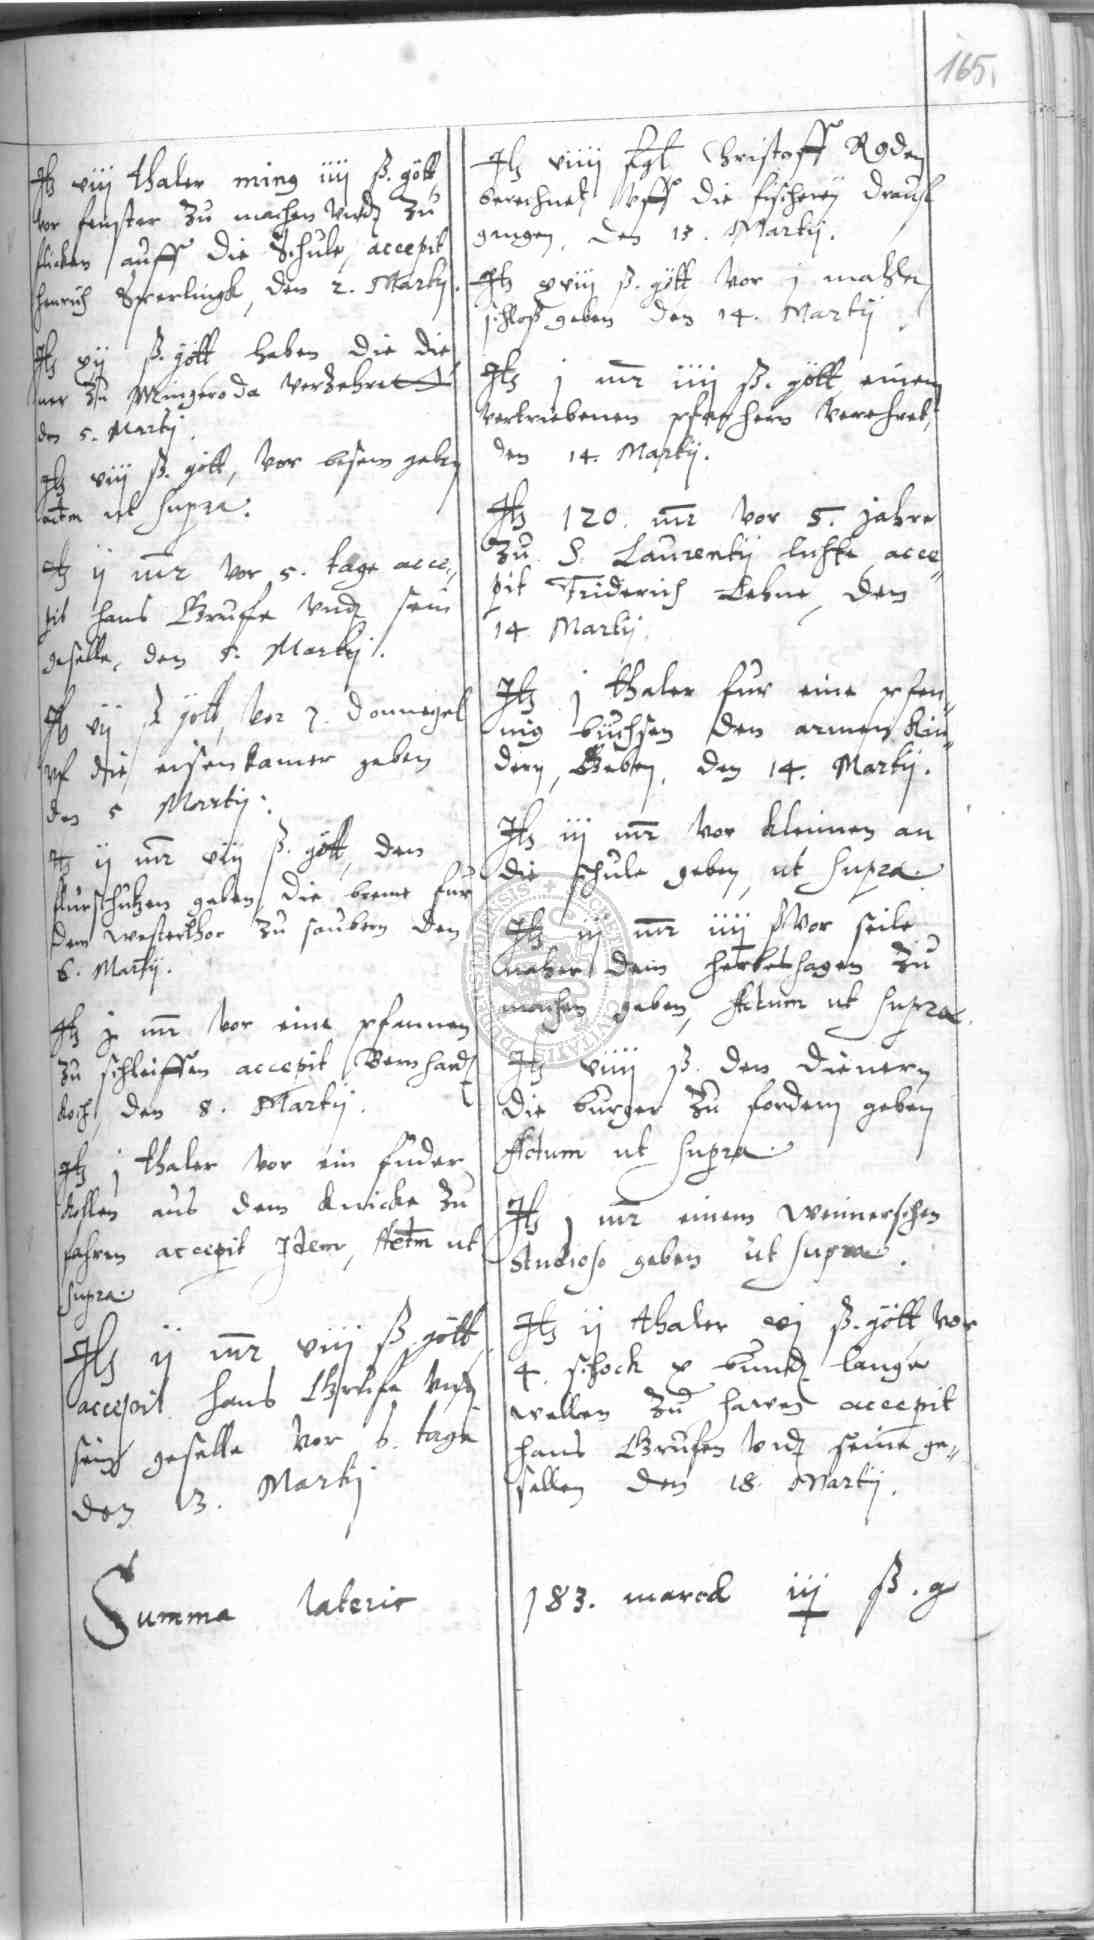 165.
Itz viij thaler ming iiij ß. gött
vor fenster zu machen vndt zu
flicken auff die Schule, accepit
Henrich Sperlingk, den 2. Martij.
Itz xij ß. gött haben die die
ner zu Mingeroda verzehret
den 5. Martij.
Itz viij ß. gött, vor besem geben
actm ut supra.
Itz ij mr vor 5. tage acce„
pit hans Grufe vnd sein
geselle, den 5. Martij.
Itz vij ß gött, vor 7. donnegel
vf die eisenkamer geben
den 5 Martij.
Itz ij mr viij ß. gött, den
flurschutzen geben, die beeme fur
dem westerthor zu saubern den
6. Martij.
Itz j mr vor eine pfannen
zu schleiffen accepit Bernhardt
Koch, den 8. Martij.
Itz j thaler vor ein fuder
kohllen aus dem Kuicke zu
fahren accepit Idem, Actm ut
supra.
Itz ij mr viij ß. gött
accepit hans Grufe vnd
sein geselle vor 6. tage
den 13. Martij
Itz viiij Christoff Roden
berechnet vff die fischerey drauf
gangen, den 13. Martij.
Itz xviij ß. gött vor j mahl
schloß geben den 14. Martij
Itz j mr iiij ß. gött einem
vertriebenen pfarhern verehret,
den 14. Martij.
Itz 120. mr vor 5. jahre
zu S. Laurentij lichte, acce„
pit Friderich Lehne, den
14. Martij.
Itz j thaler fur eine pfen„
nig buchsen den armen Kin„
dern, Geben, den 14. Martij.
Itz iij mr vor kleimen an
die schule geben, ut supra.
Itz iij mr iiij ß vor seile
naher dem herbeshagen zu
machen geben, Actum ut supra.
Itz viiij ß. den dienern
die burger zu fordern geben
Actum ut supra.
Itz j mr einem weimerschen
studioso geben ut supra.
Itz ij thaler xvj ß. gött vor
4. schock x bundt lange
wellen zu hawen accepit
hans Grufen vnd seine ge„
sellen den 18. Martij.
Summa lateris 183. marck iij ß. g